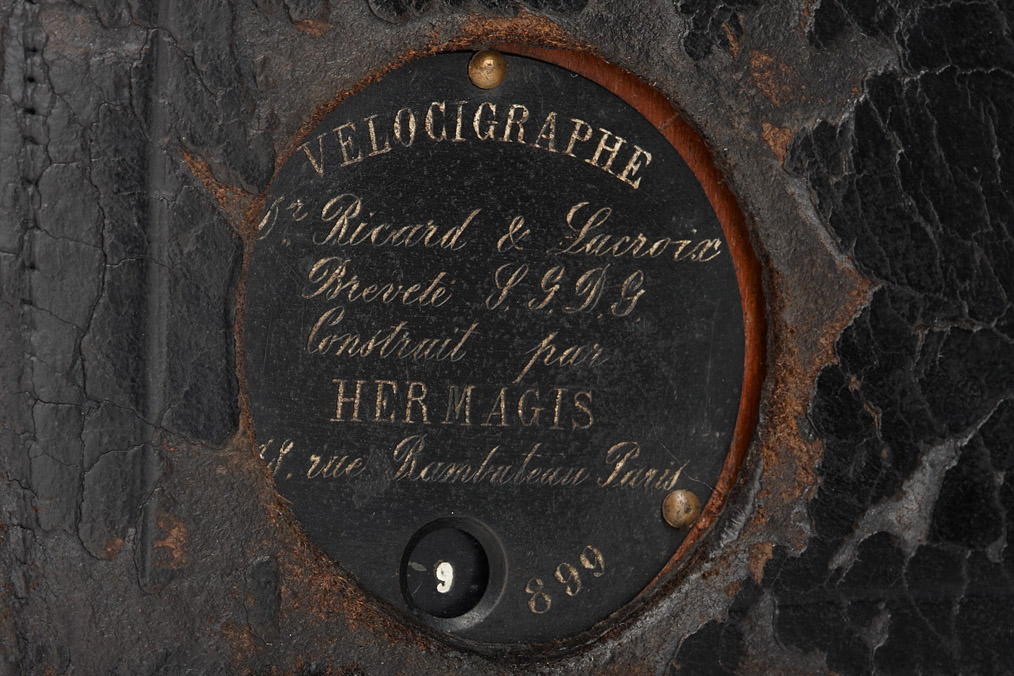 VELOCIGRAPHE
Ricard & Lacroix
Breveté S.G.D.G
Construit par
HERMAGIS
rue Rambuteau Paris
9
899